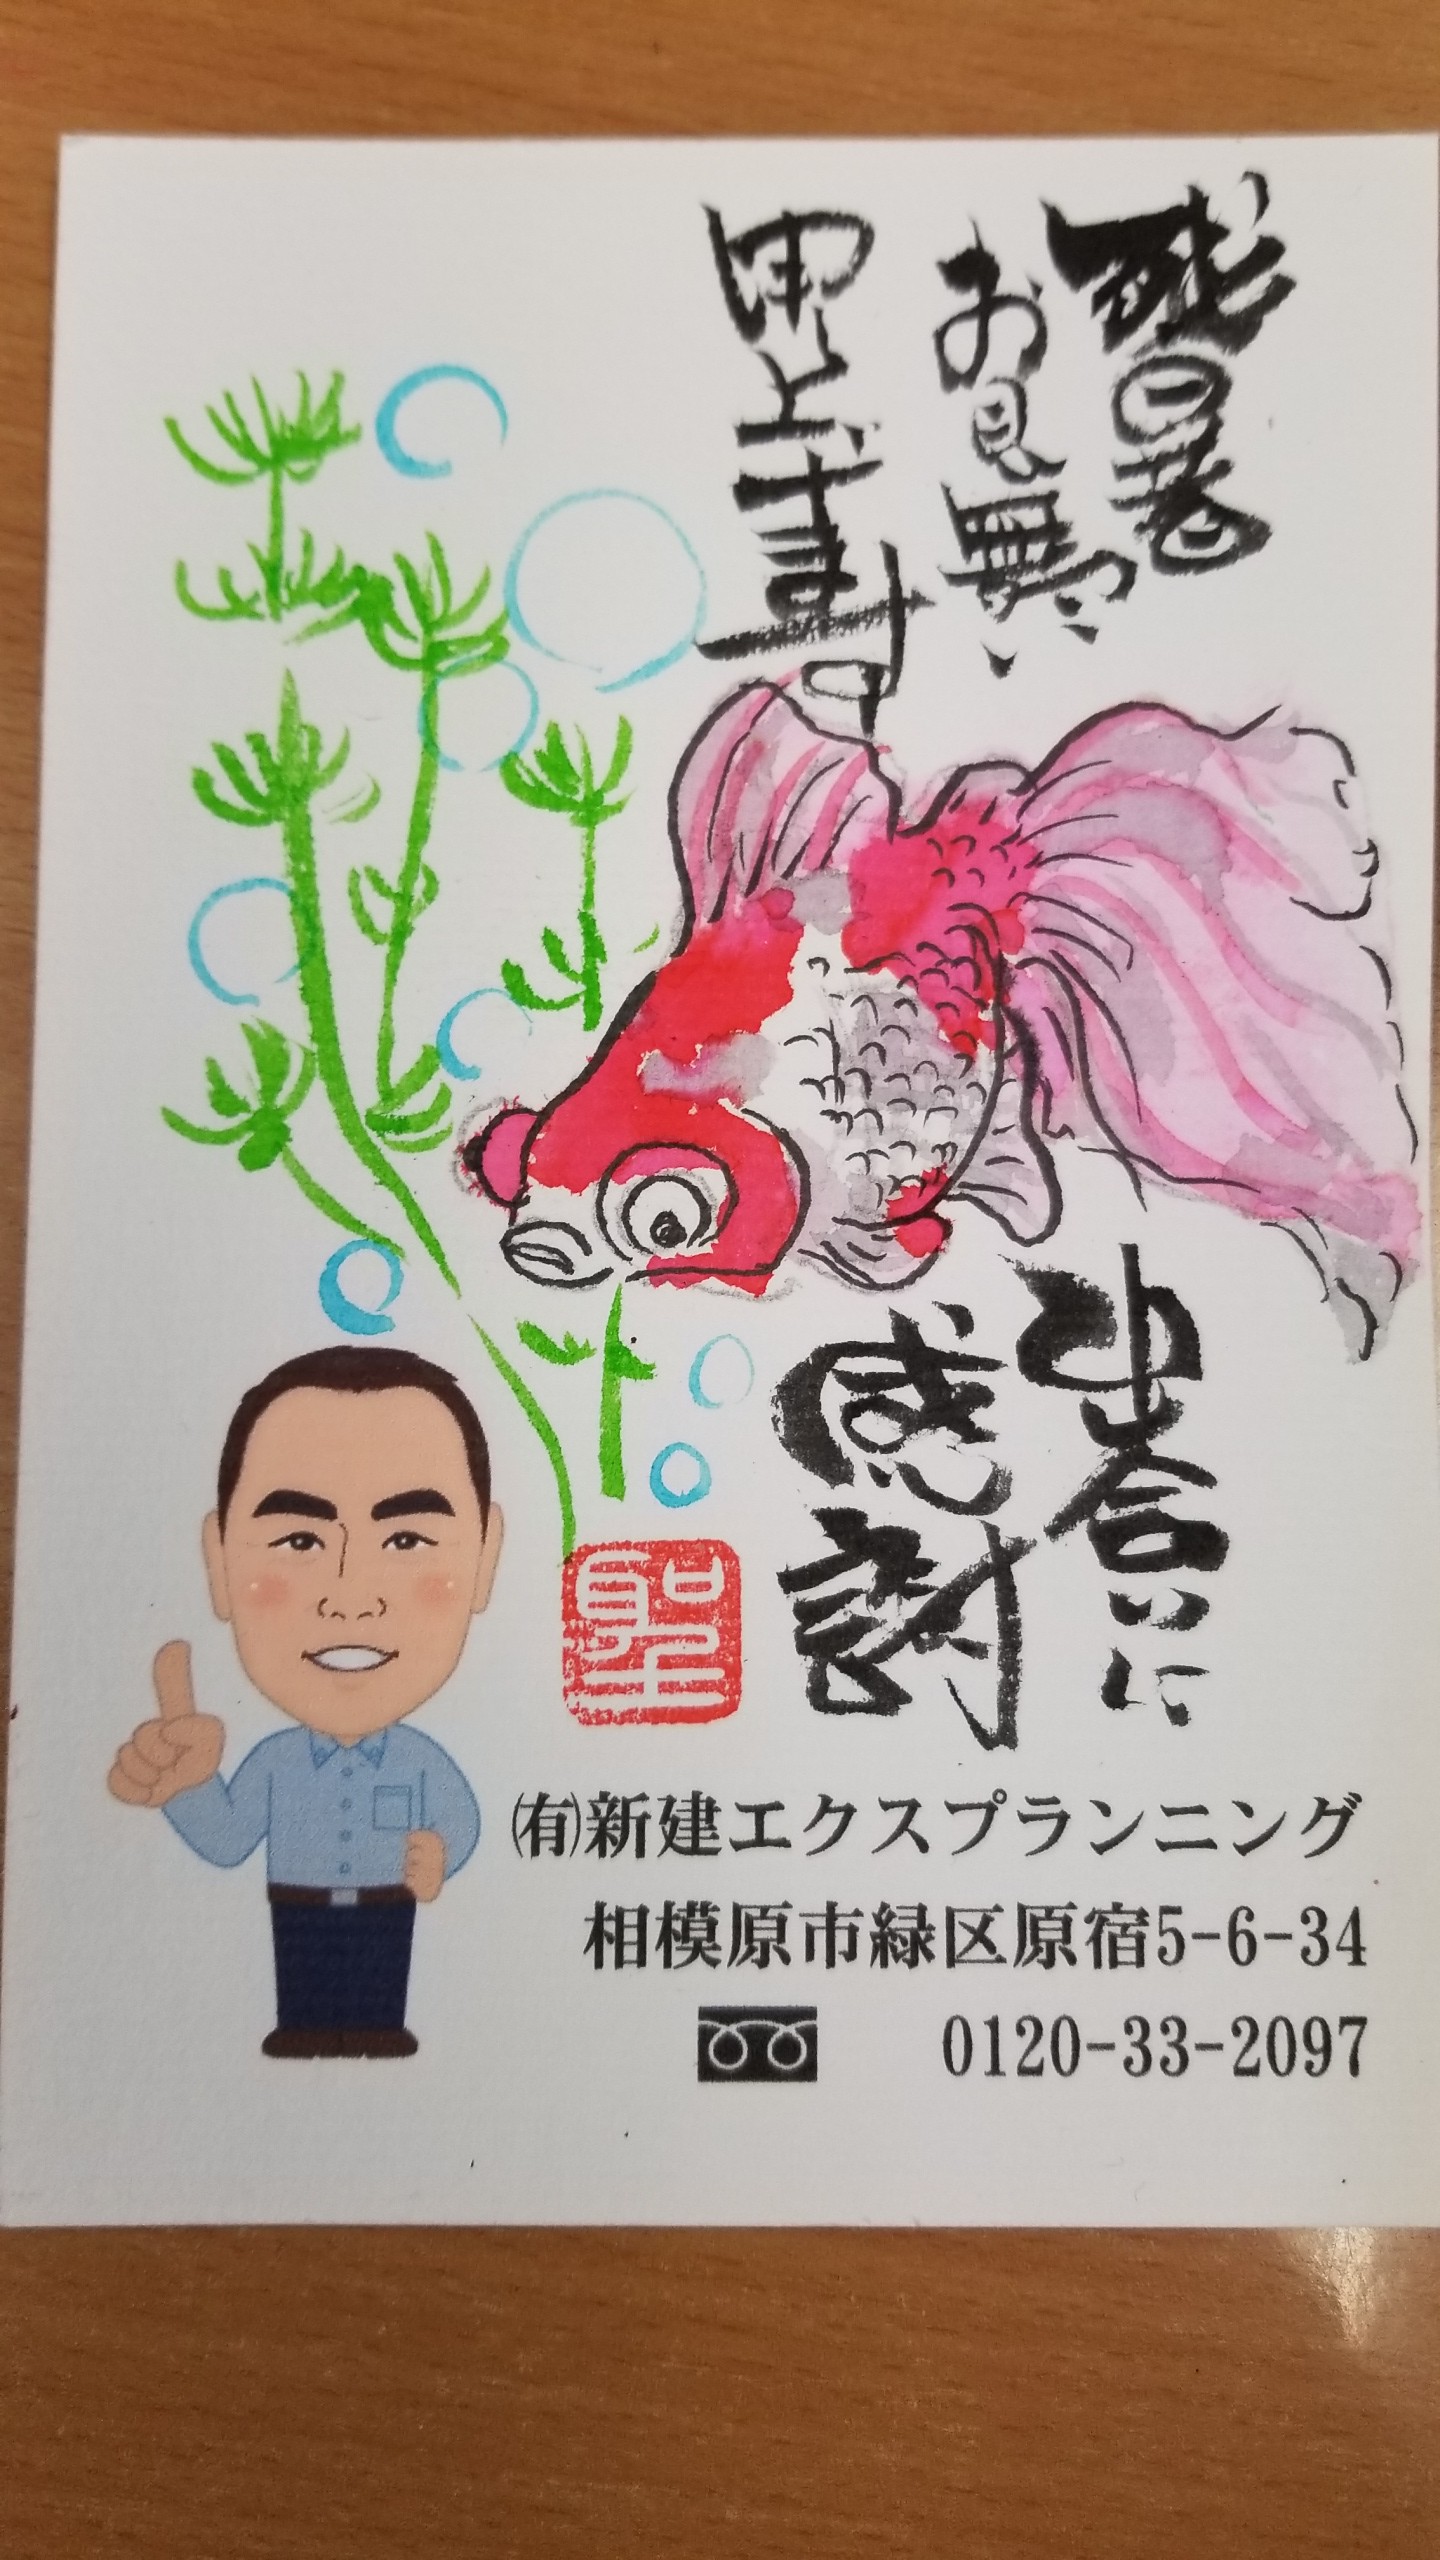 残暑
お見舞い
申し上げます
出合いに
感謝
聖
㈲新建エクスプランニング
相模原市緑区原宿5-6-34
0120-33-2097